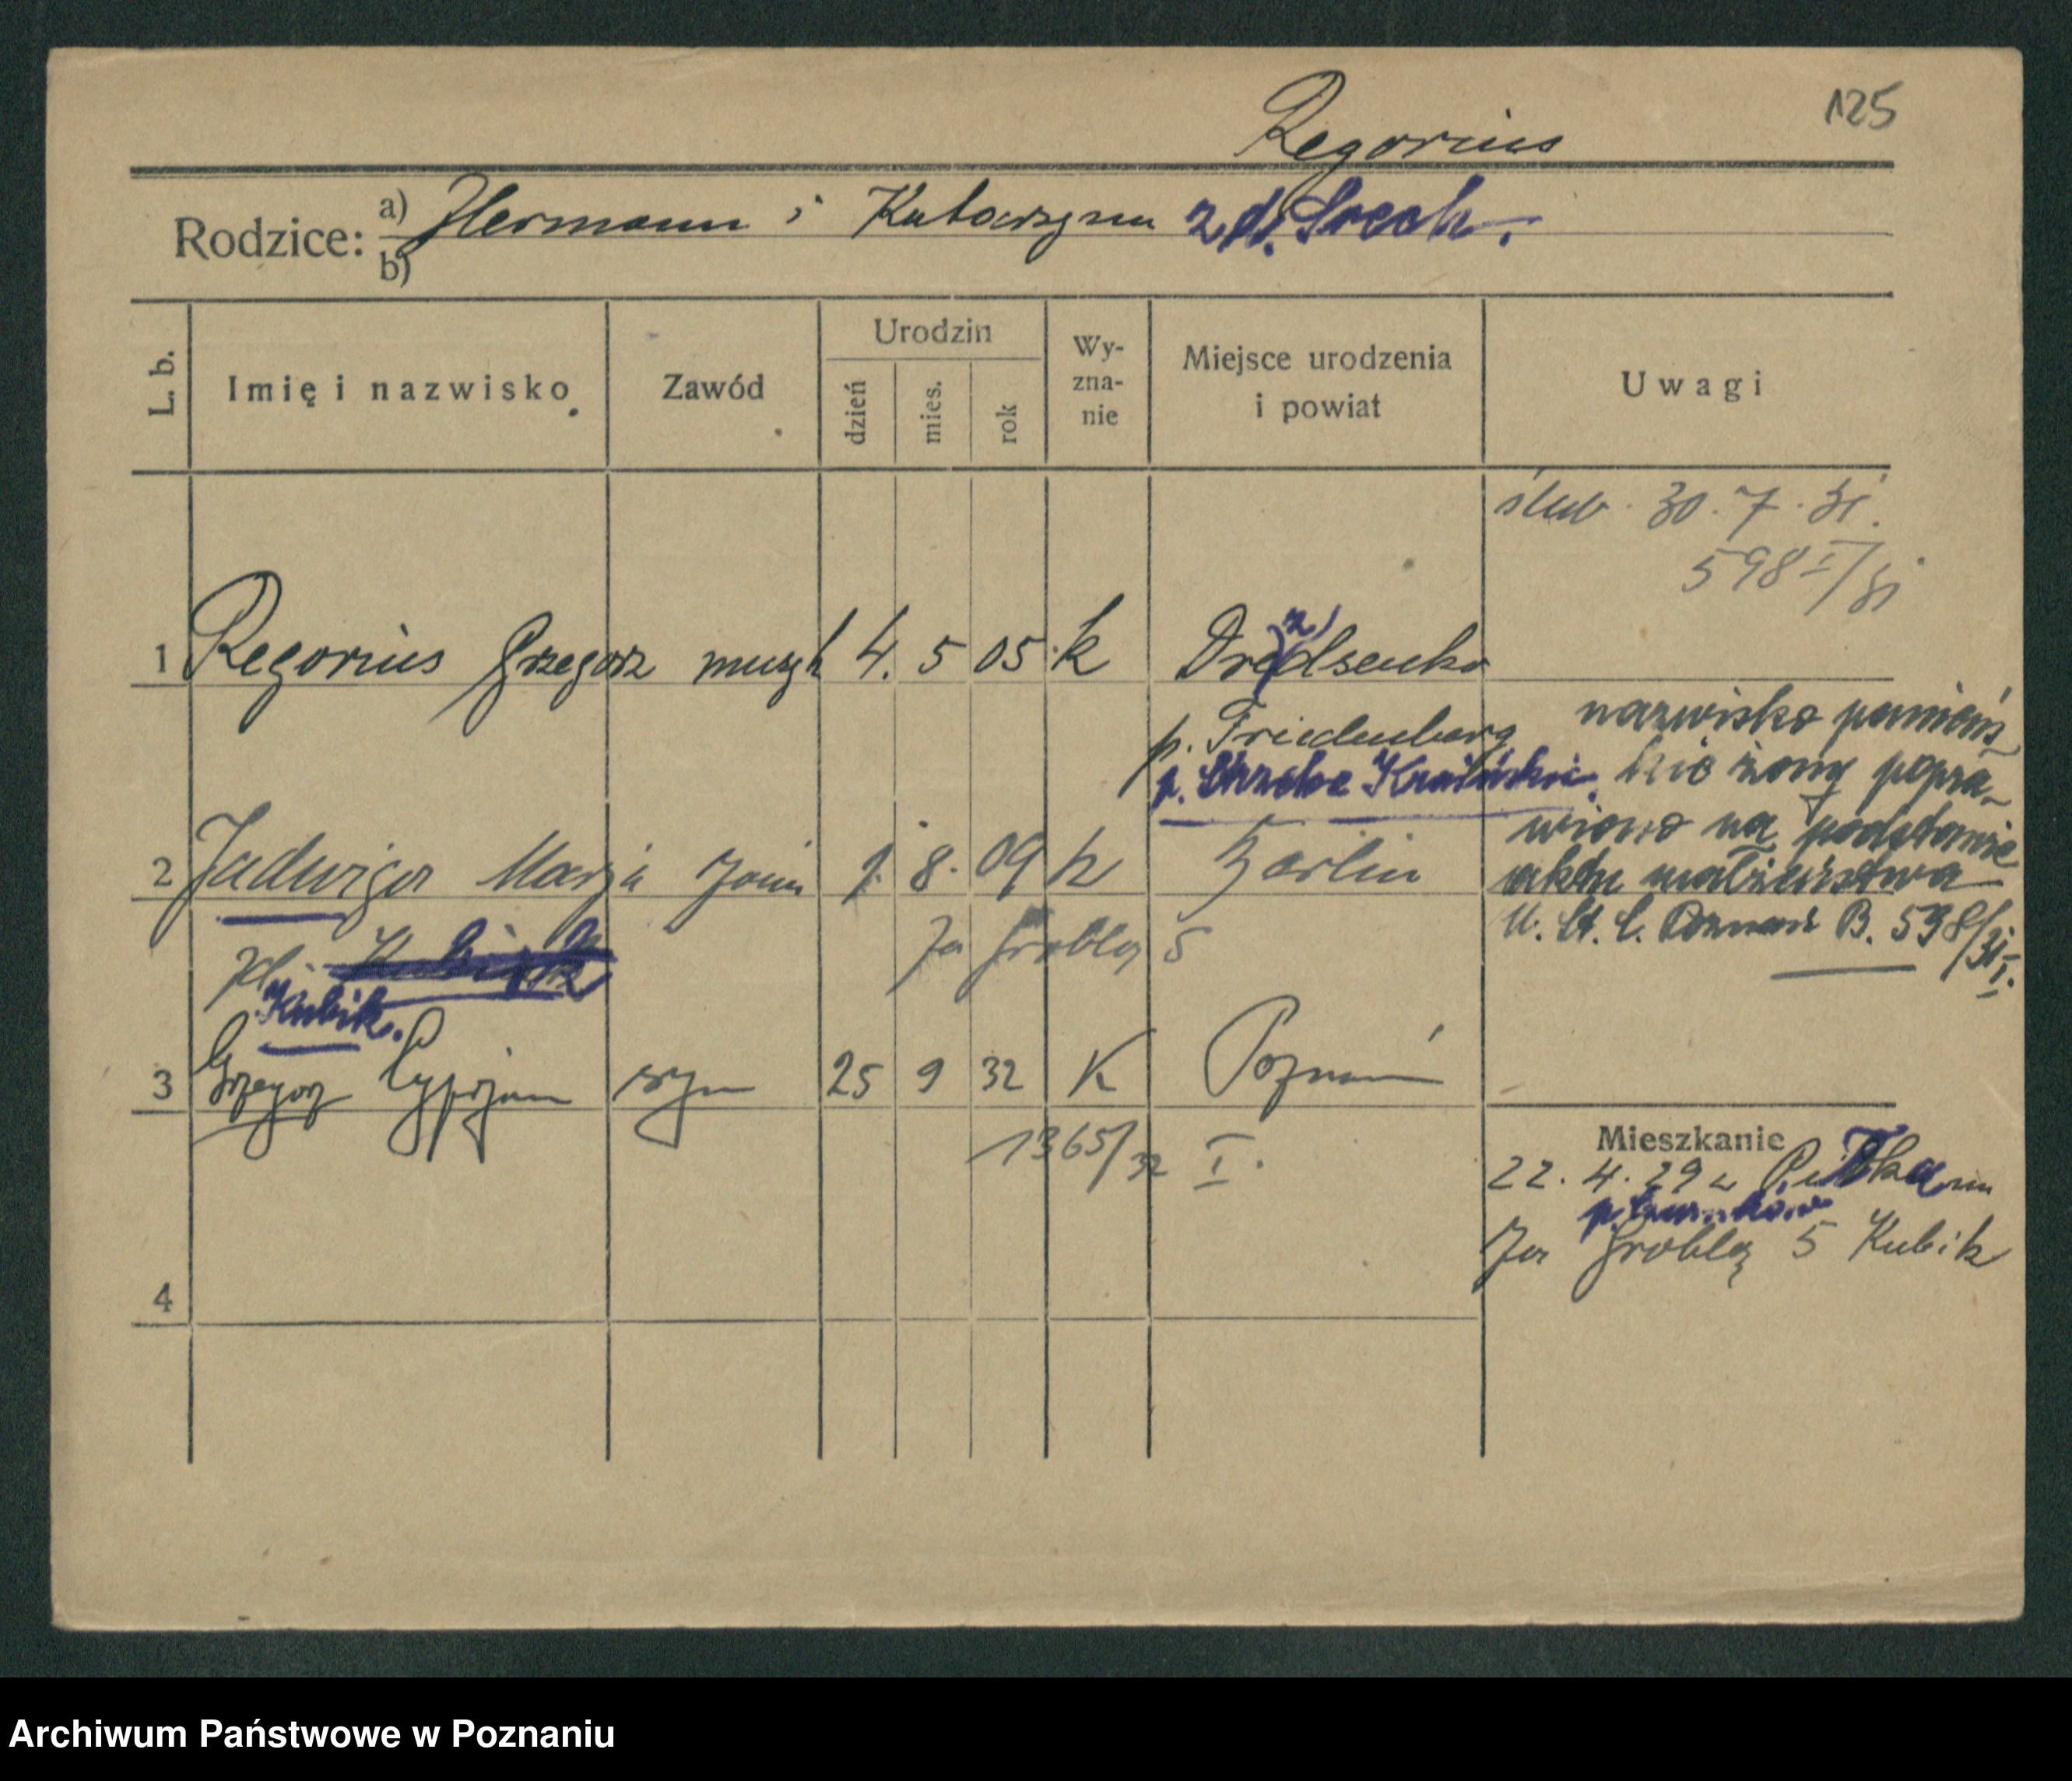 125
Regorius
Rodzice: a) Hermann i Katarzyna z d. Srech.
b)
L. b.
Imię i nazwisko
Zawód
Urodzin
dzień
mies.
rok
Wy-
zna-
nie
Miejsce urodzenia
i powiat
Uwagi
ślub. 30. 7. 31.
598 I/31
1 Regorius Grzegorz muzyk 4. 5 05 k
p. Friedenberg
p. Strzelce Kraińskie.
nazwisko panieńs
kie żony popra-
wiono na podstawie
aktu małżeństwa
U. St. C. Poznań B. 598/31 I.
2 Jadwiga Marja żona 1. 8. 09 k Berlin
Za Groblą 5
zd. Kubiak
Kubik.
3 Grzegorz Cyprjan syn 25 9 32 K Poznań
1365/32 I.
Mieszkanie
22. 4. 29 z
Za Groblą 5 Kubik
4
Archiwum Państwowe w Poznaniu